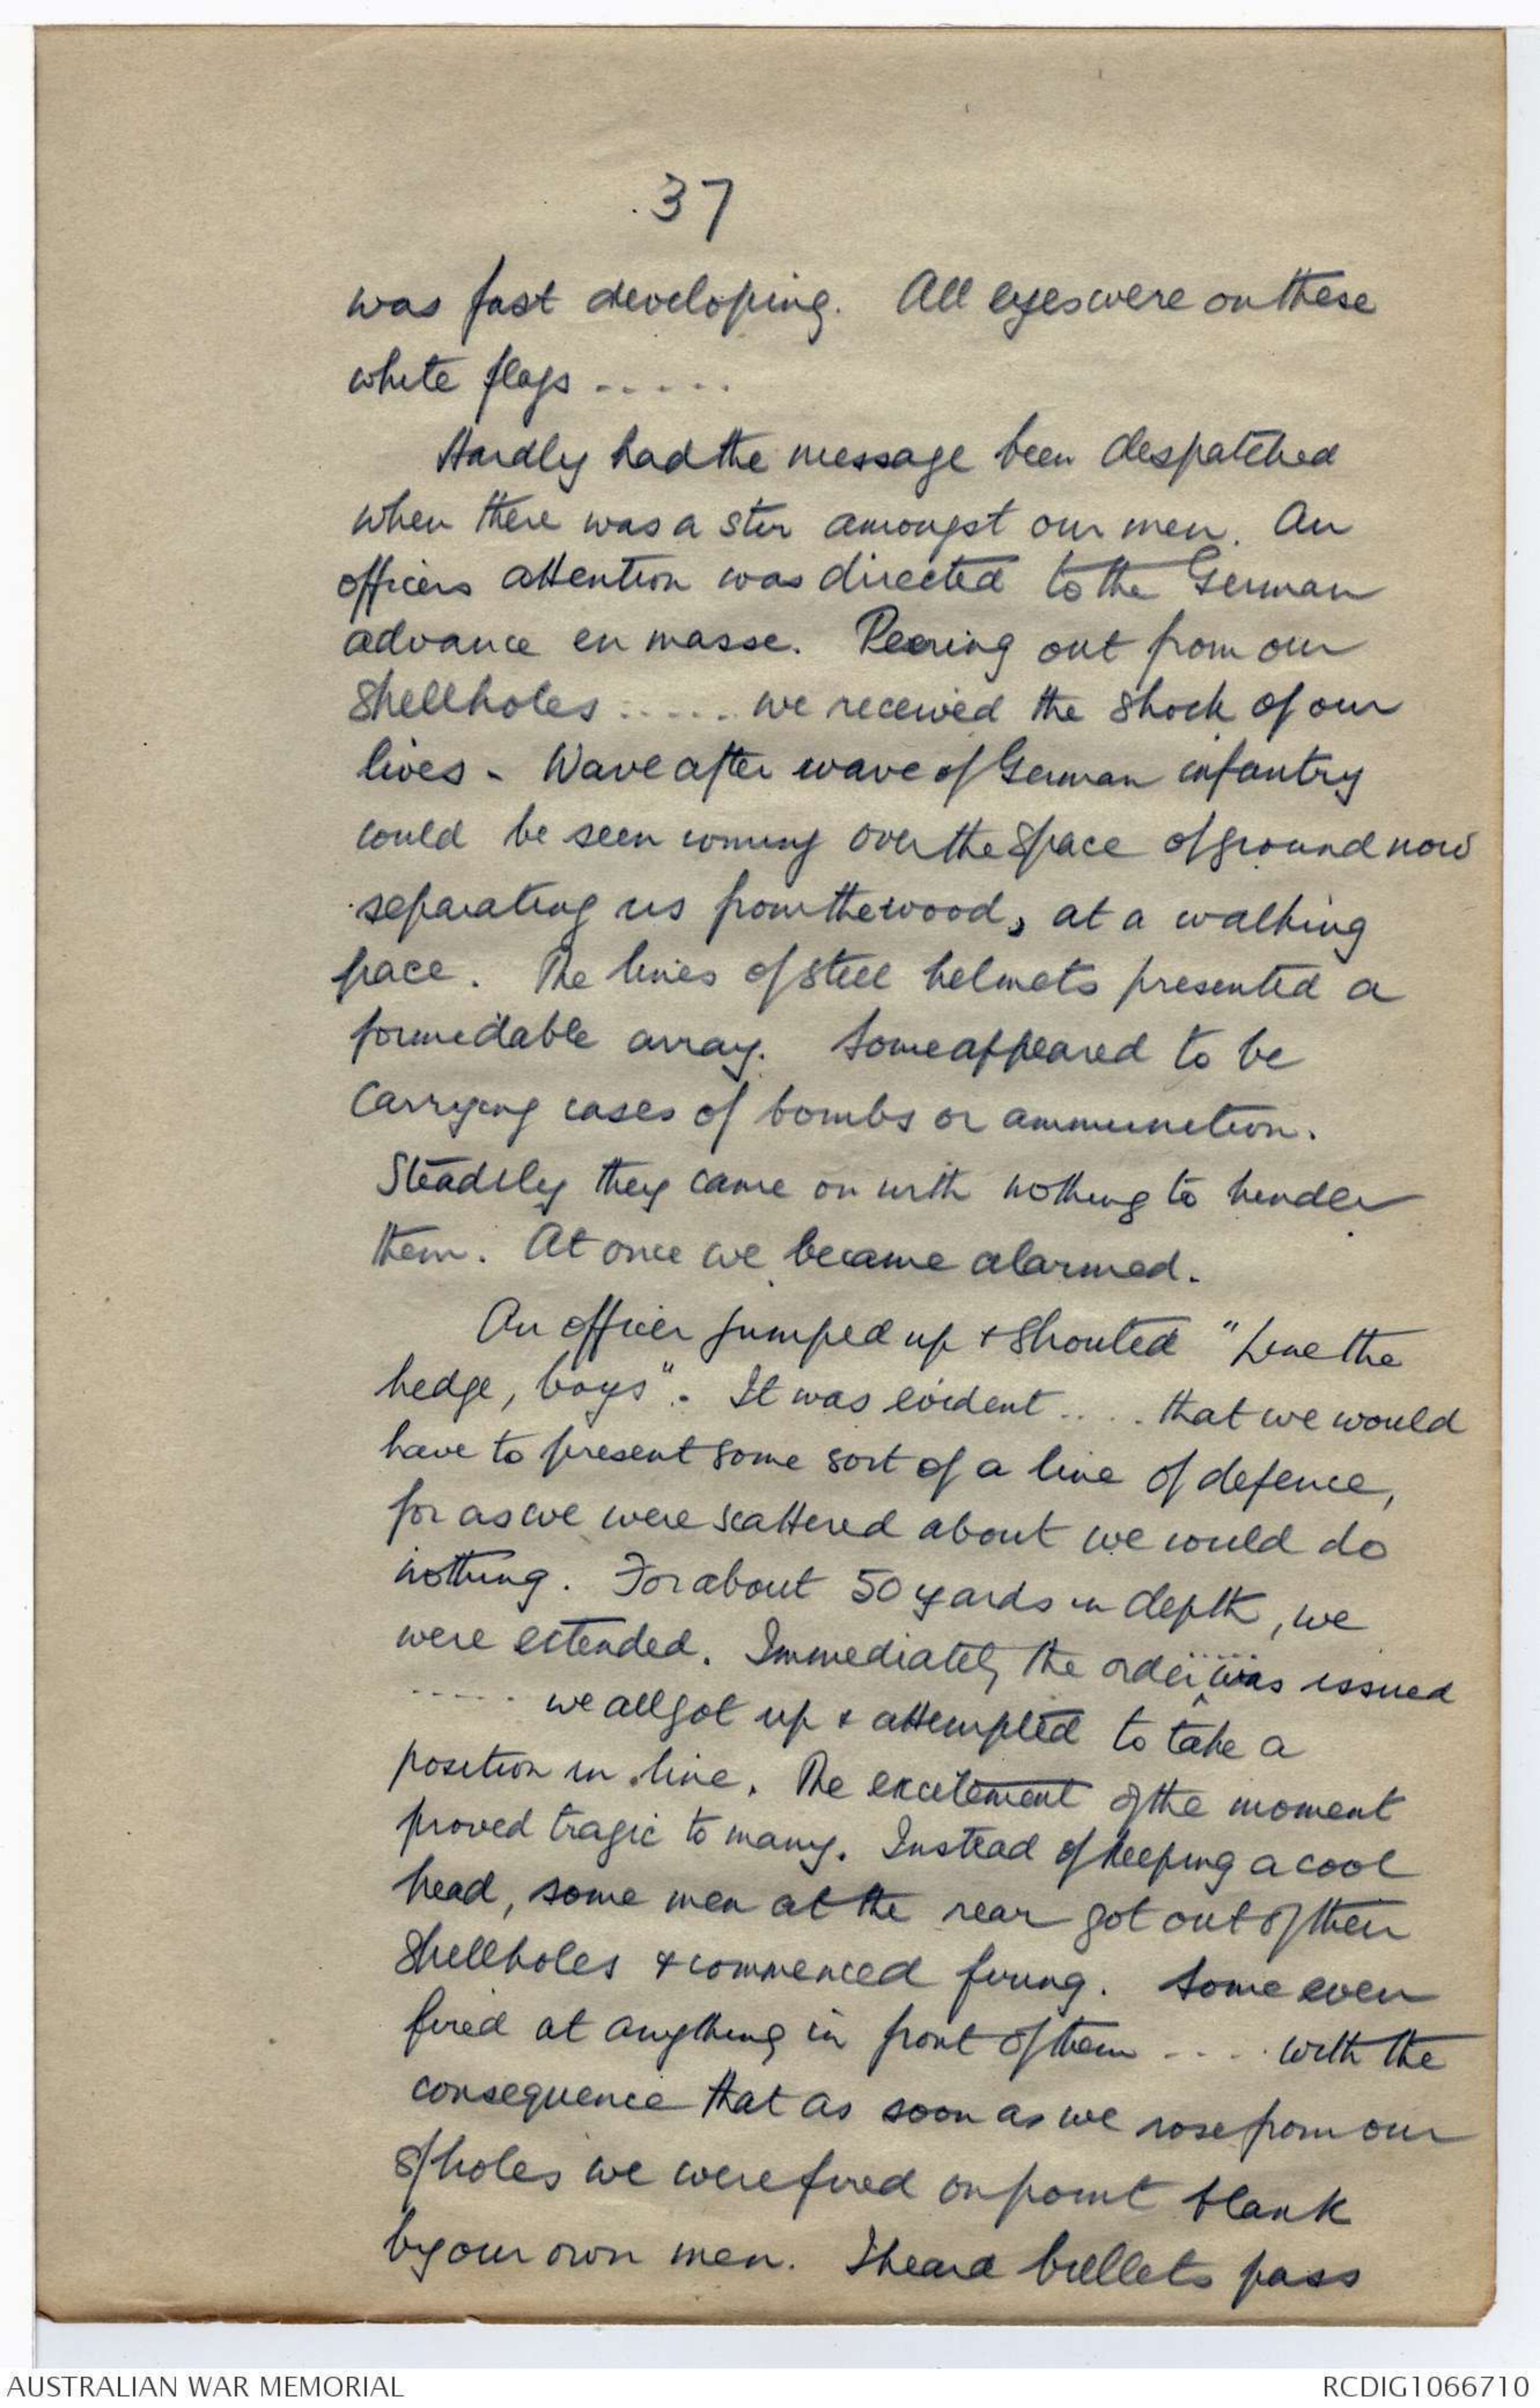 .37
was fast developing. All eyes were on these
white flags .....
Hardly had the message been despatched
when there was a stir amongst our men. An
officers attention was directed to the German
advance en masse. Peering out from our
shellholes ..... we received the shock of our
lives - Wave after wave of German infantry
could be seen coming over the space of ground now
separating us from the wood, at a walking
pace. The lines of steel helmets presented a
formidable array. Some appeared to be
carrying cases of bombs or ammunition.
Steadily they came on with nothing to hinder
them. At once we became alarmed.
An officer jumped up & shouted "Line the
hedge, boys". It was evident .... that we would
have to present some sort of a line of defence,
for as we were scattered about we could do
nothing. For about 50 yards in depth, we
were extended. Immediately the order ..... was issued
..... we all got up & attempted to take a
position in line. The excitement of the moment
proved tragic to many. Instead of keeping a cool
head, some men at the rear got out of their
shellholes & commenced firing. Some even
fired at anything in front of them .... with the
consequence that as soon as we rose from our
s/holes we were fired on point blank
by our own men. I heard bullets pass
AUSTRALIAN WAR MEMORIAL
RCDIG1066710